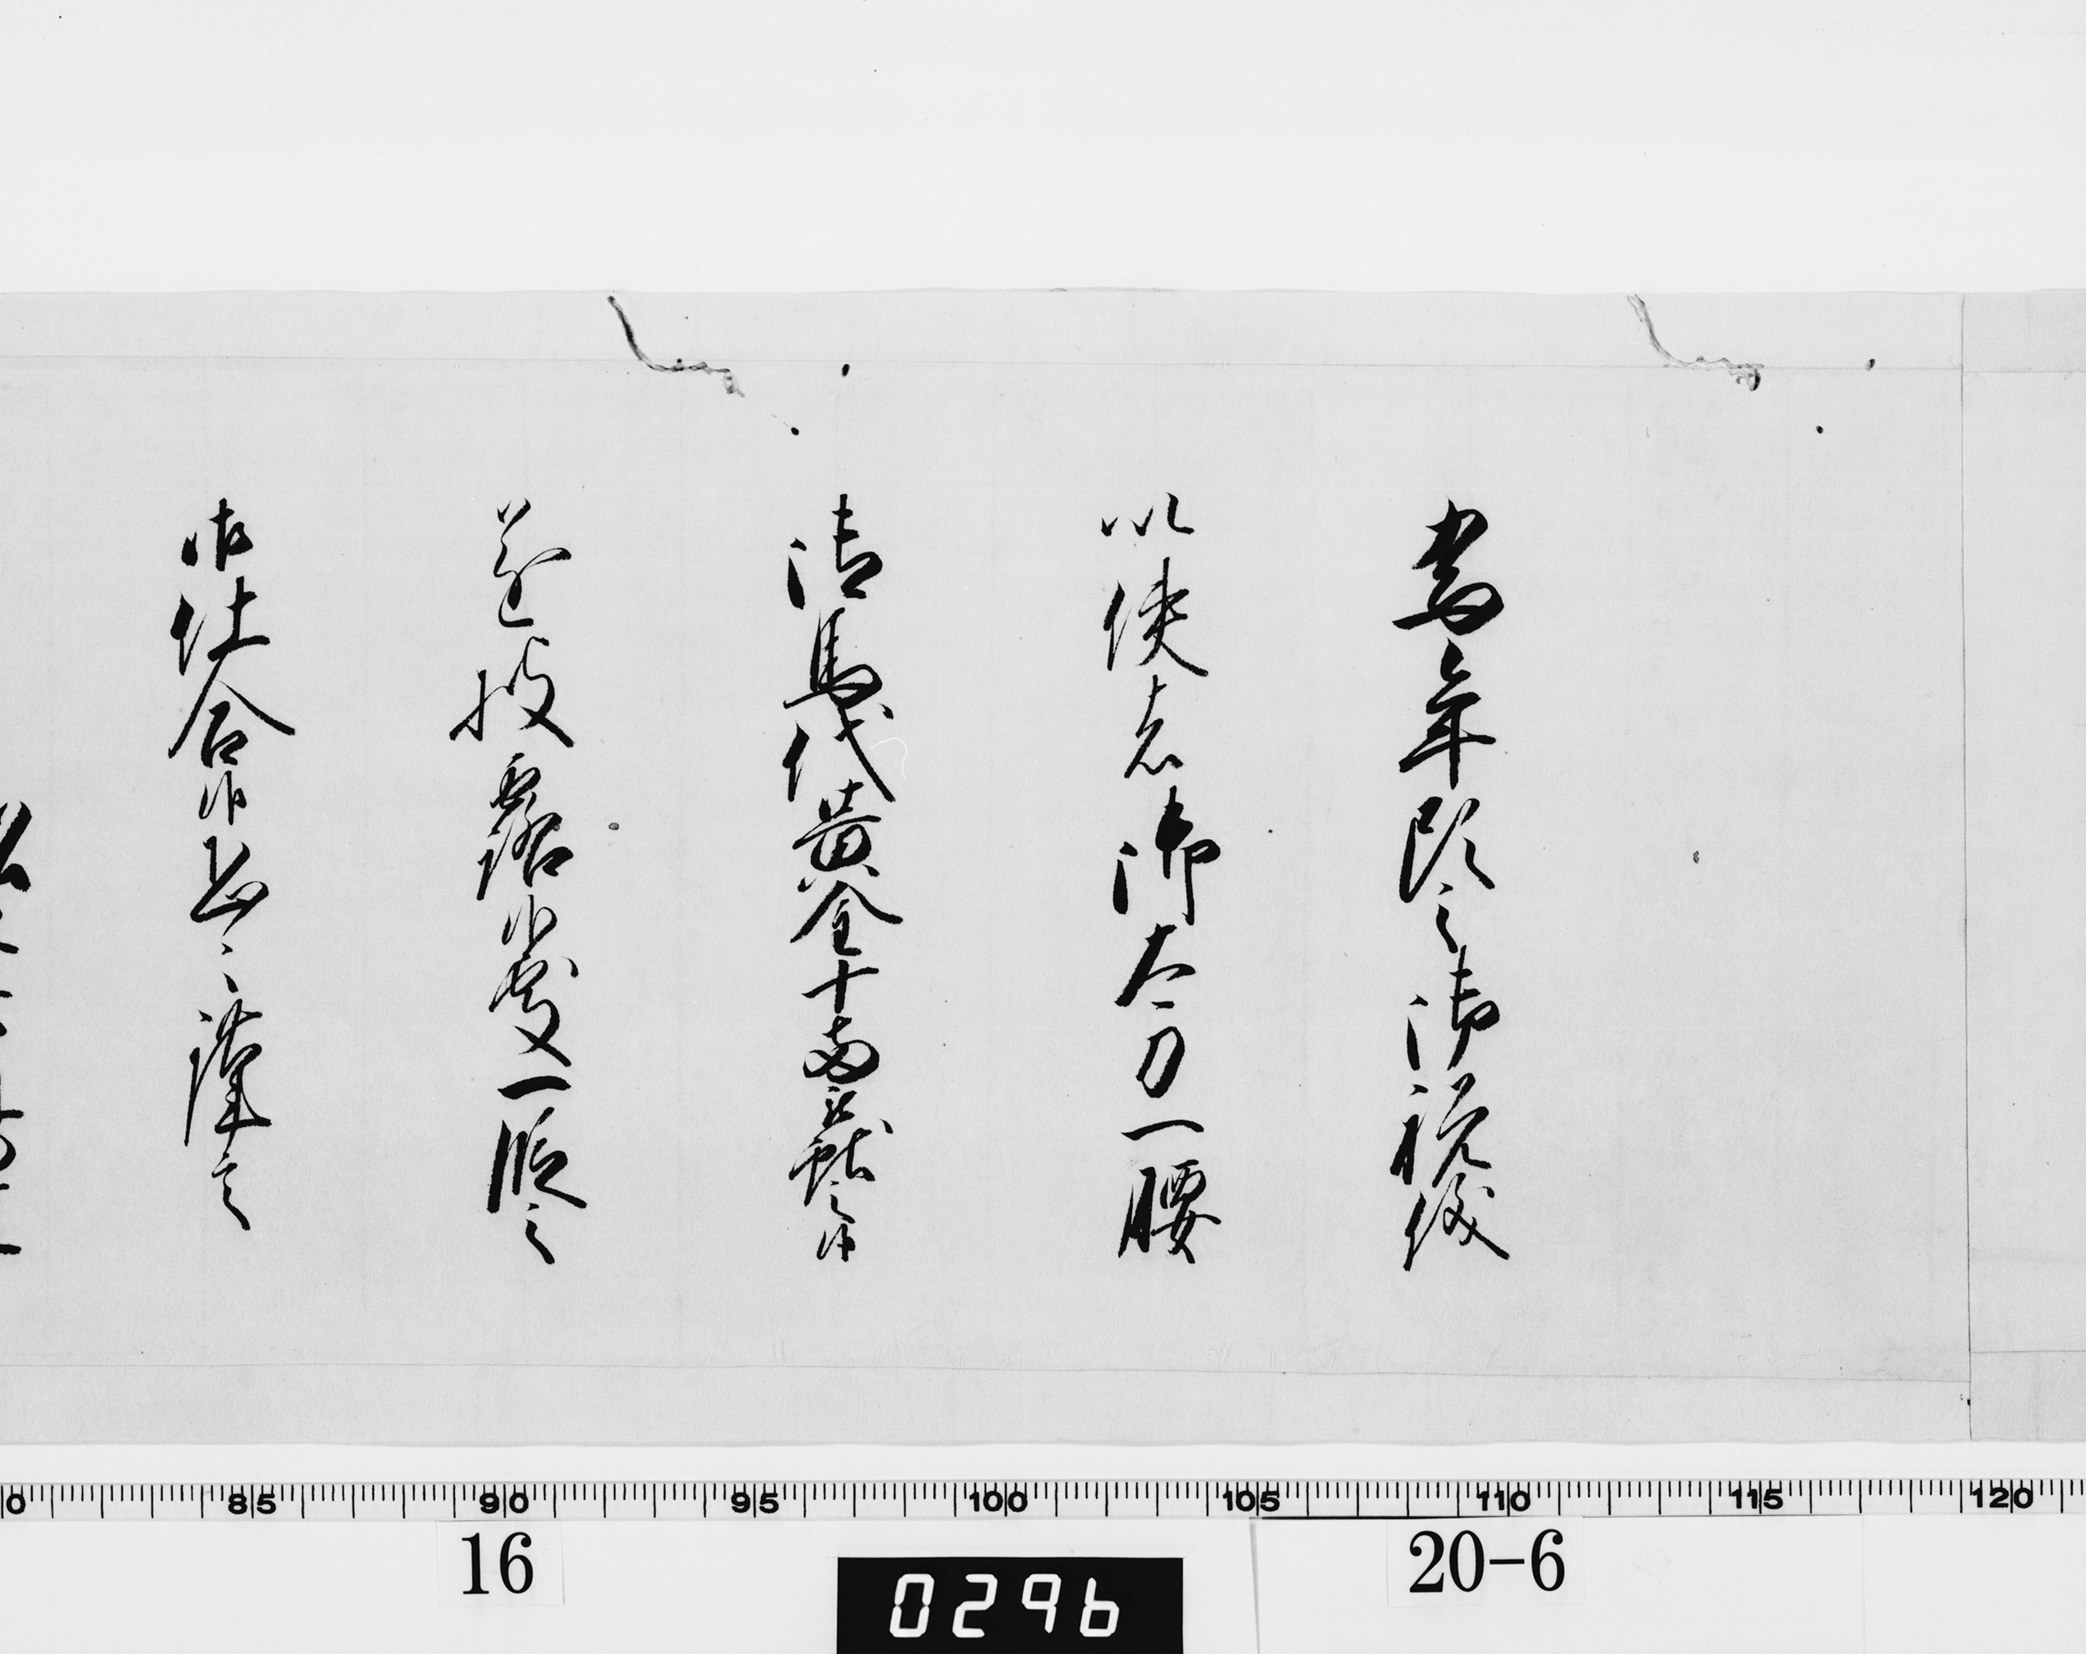 為年頭之御祝儀
以使者御太刀一腰
御馬代黄金十両被献之候
遂披露候處一段之
御仕合候恐々謹言
0 85 90 95 100 105 110 115 120
16
20-6
0296